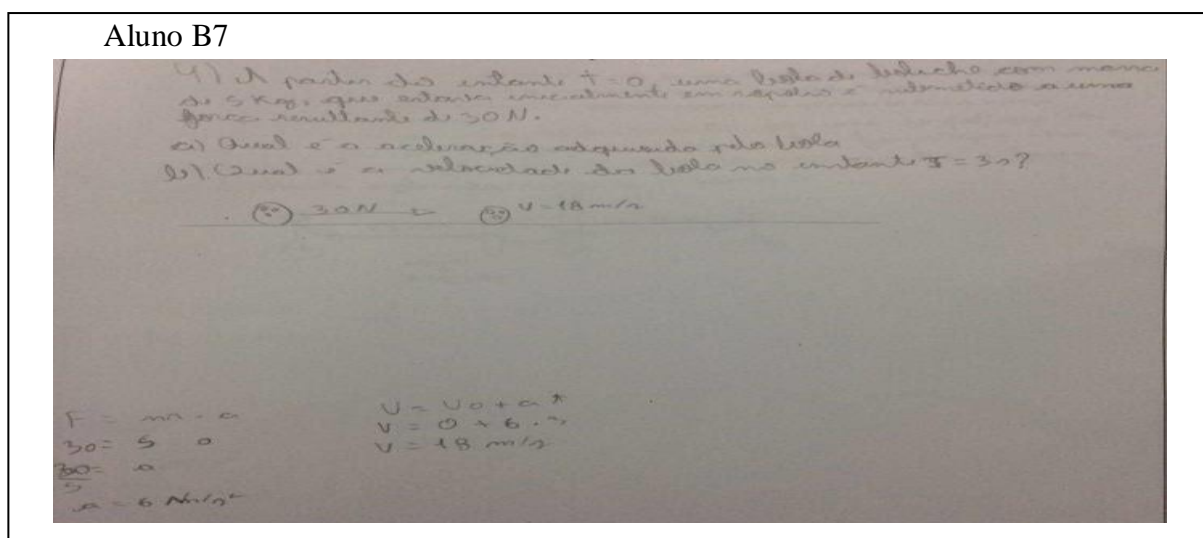 Aluno B7
4) A partir do instante t=0, uma bola de boliche com massa
de 5 Kg, que estava inicialmente em repouso é submetida a uma
força resultante de 30N.
a) Qual é a aceleração adquirida pela bola
b) Qual é a velocidade da bola no instante T=3s?
30N V=18m/s
F = m . a
30= 5 a
30= a
5
a = 6 m/s²
V = Vo + a t
V = 0 + 6 . 3
V = 18 m/s